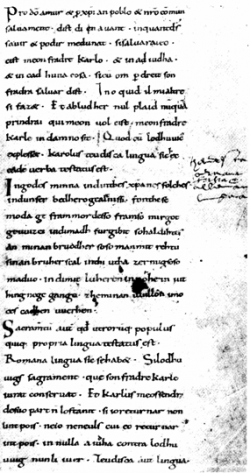 Pro dõ amur & p xp̃ian poblo & nrõ comun
saluament. dist di en auant. inquantdˢ
sauir & podir medunat. sisaluaraieo.
cist meon fradre Karlo. & in ad iudha.
& in cad huna cosa. sicũ om p dreit son
fradra saluar dist. Ino quid il mialtre
si faz&. Et abludher nul plaid nũquã
prindrai qui meon uol cist. meon fradre
Karle in damno sit. Quod cũ lodhuuic
explesset. karolus teudisca lingua sic ec
eade uerba testatus est.
In godes minna indinthes xp̃anes folches
indunser bedhero gealtnissi. fonthese
moda ge frammordesso framso mirgot
geuuizci indi madh furgibit sohaldihtes
an minan bruodher soso manmit rehtu
sinan bruher scal inthi utha zermigsoso
maduo. indimit luheren innohein iut
hing nege gango. zheminan uuillon imo
ces cadhen uuerhen.
Sacramentũ aut qd utrorũq; populus
quiq; propria lingua testatus est.
Romana lingua sic se hab&. Silodhu
uigs sagrament. que son fradre karlo
iurat conseruat. Et Karlus meossendr
desuo part ñ lostanit. si ioreturnar non
lint pois. neio neneuls cui eo returnar
int pois. in nulla aiudha contra lodhu
uuig nunli iuer. Teudisca aut lingua